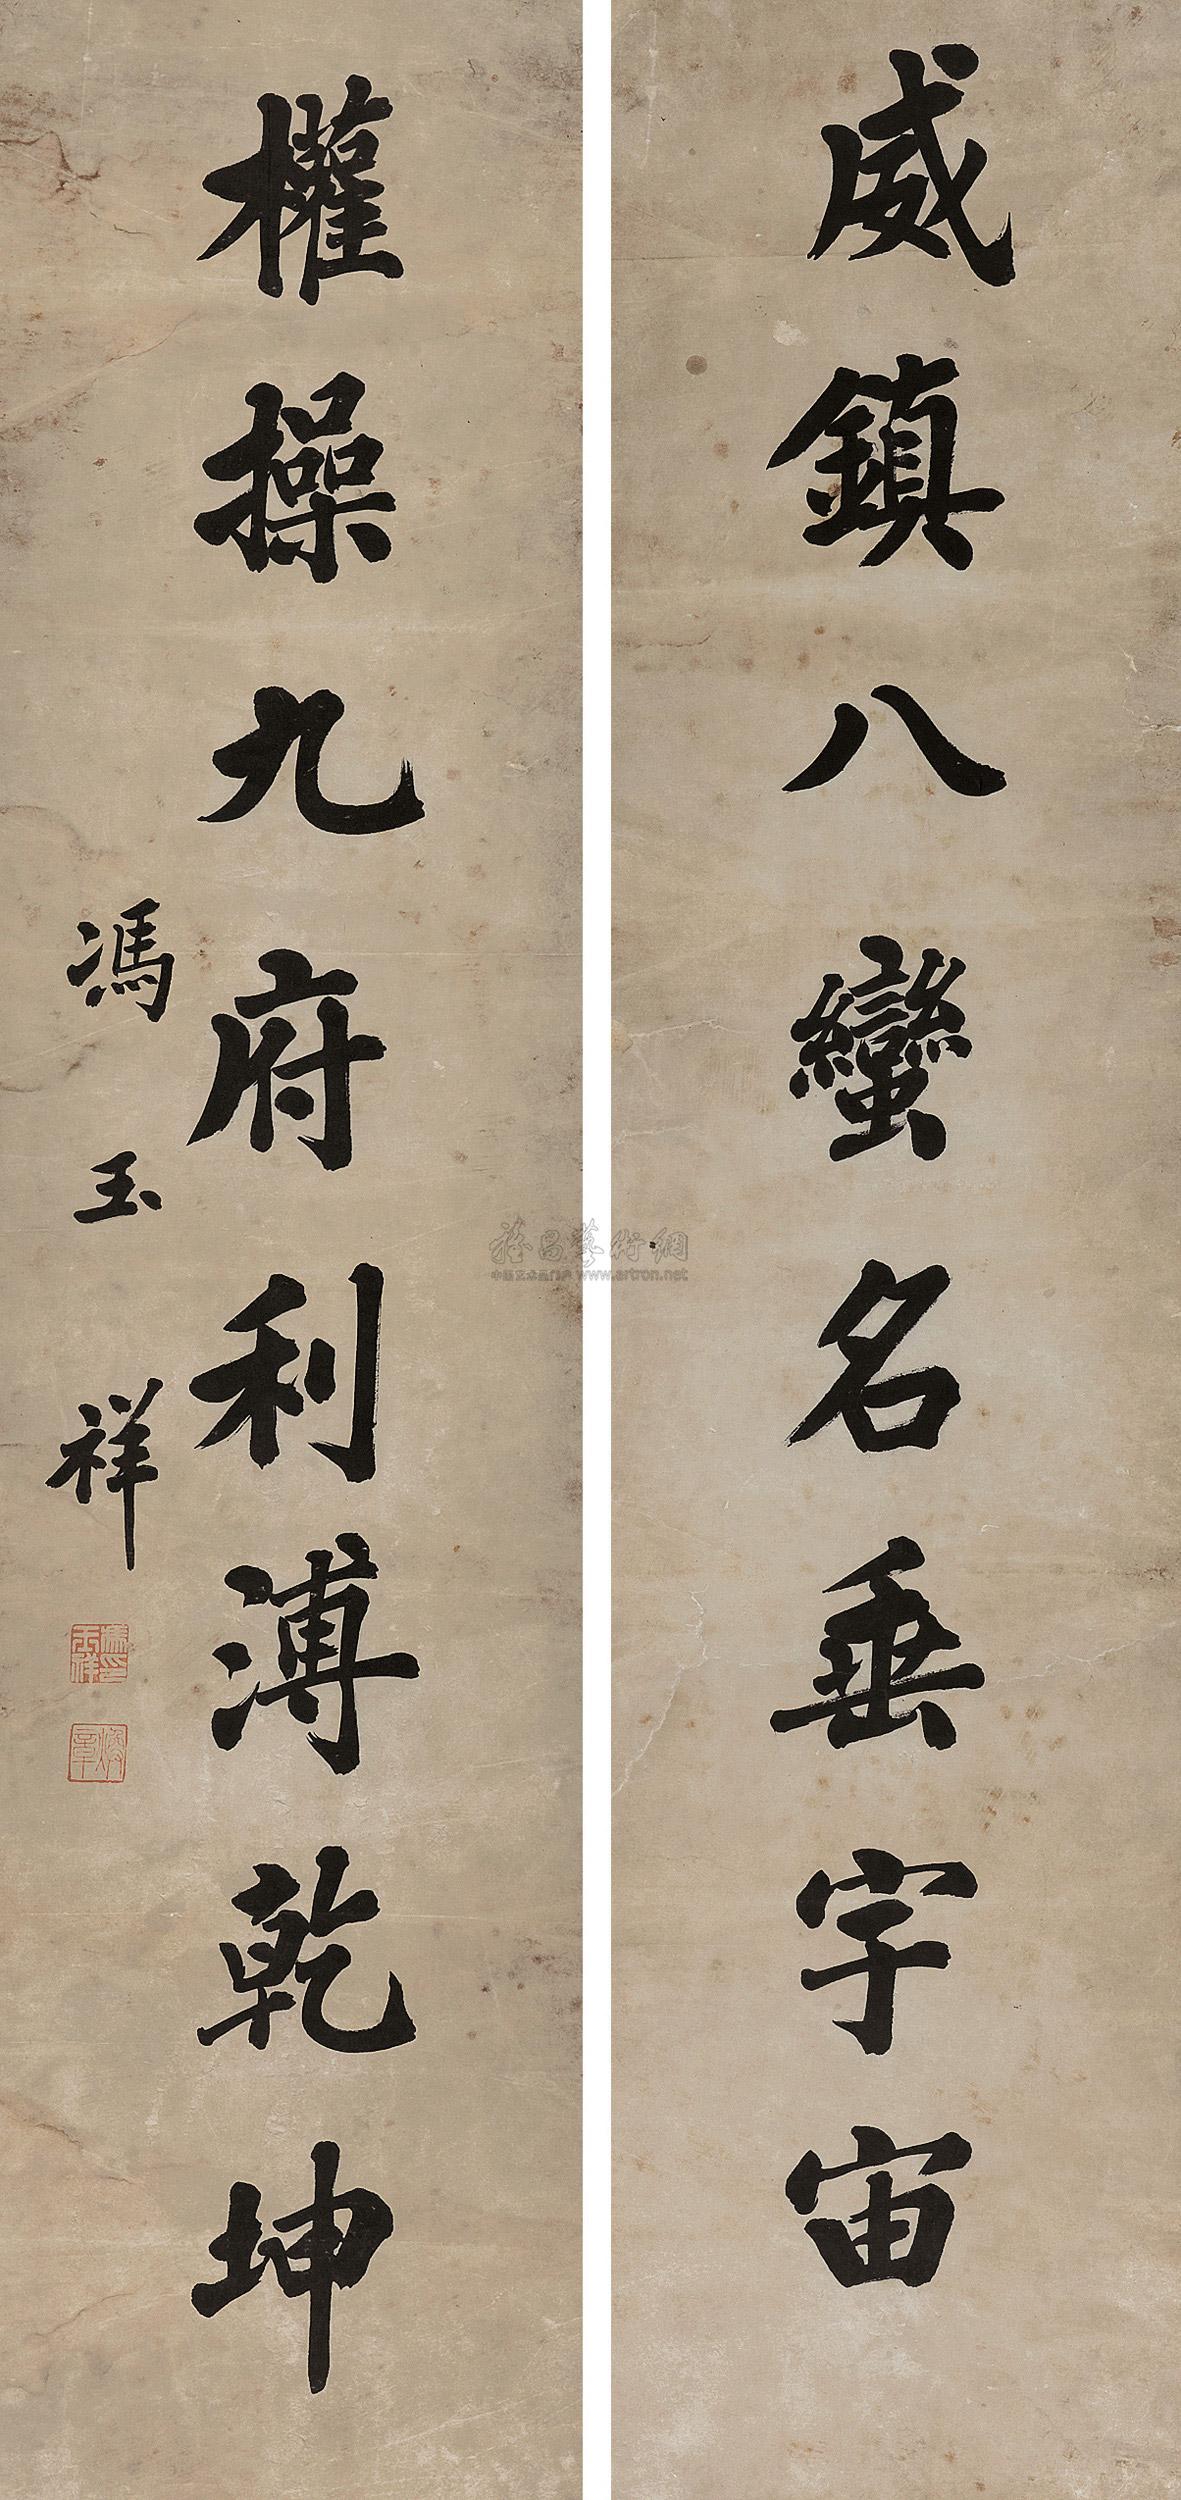 威鎮八蠻名垂宇宙
權操九府利溥乾坤
馮玉祥
雅昌藝術網
中国艺术品门户 www.artron.net